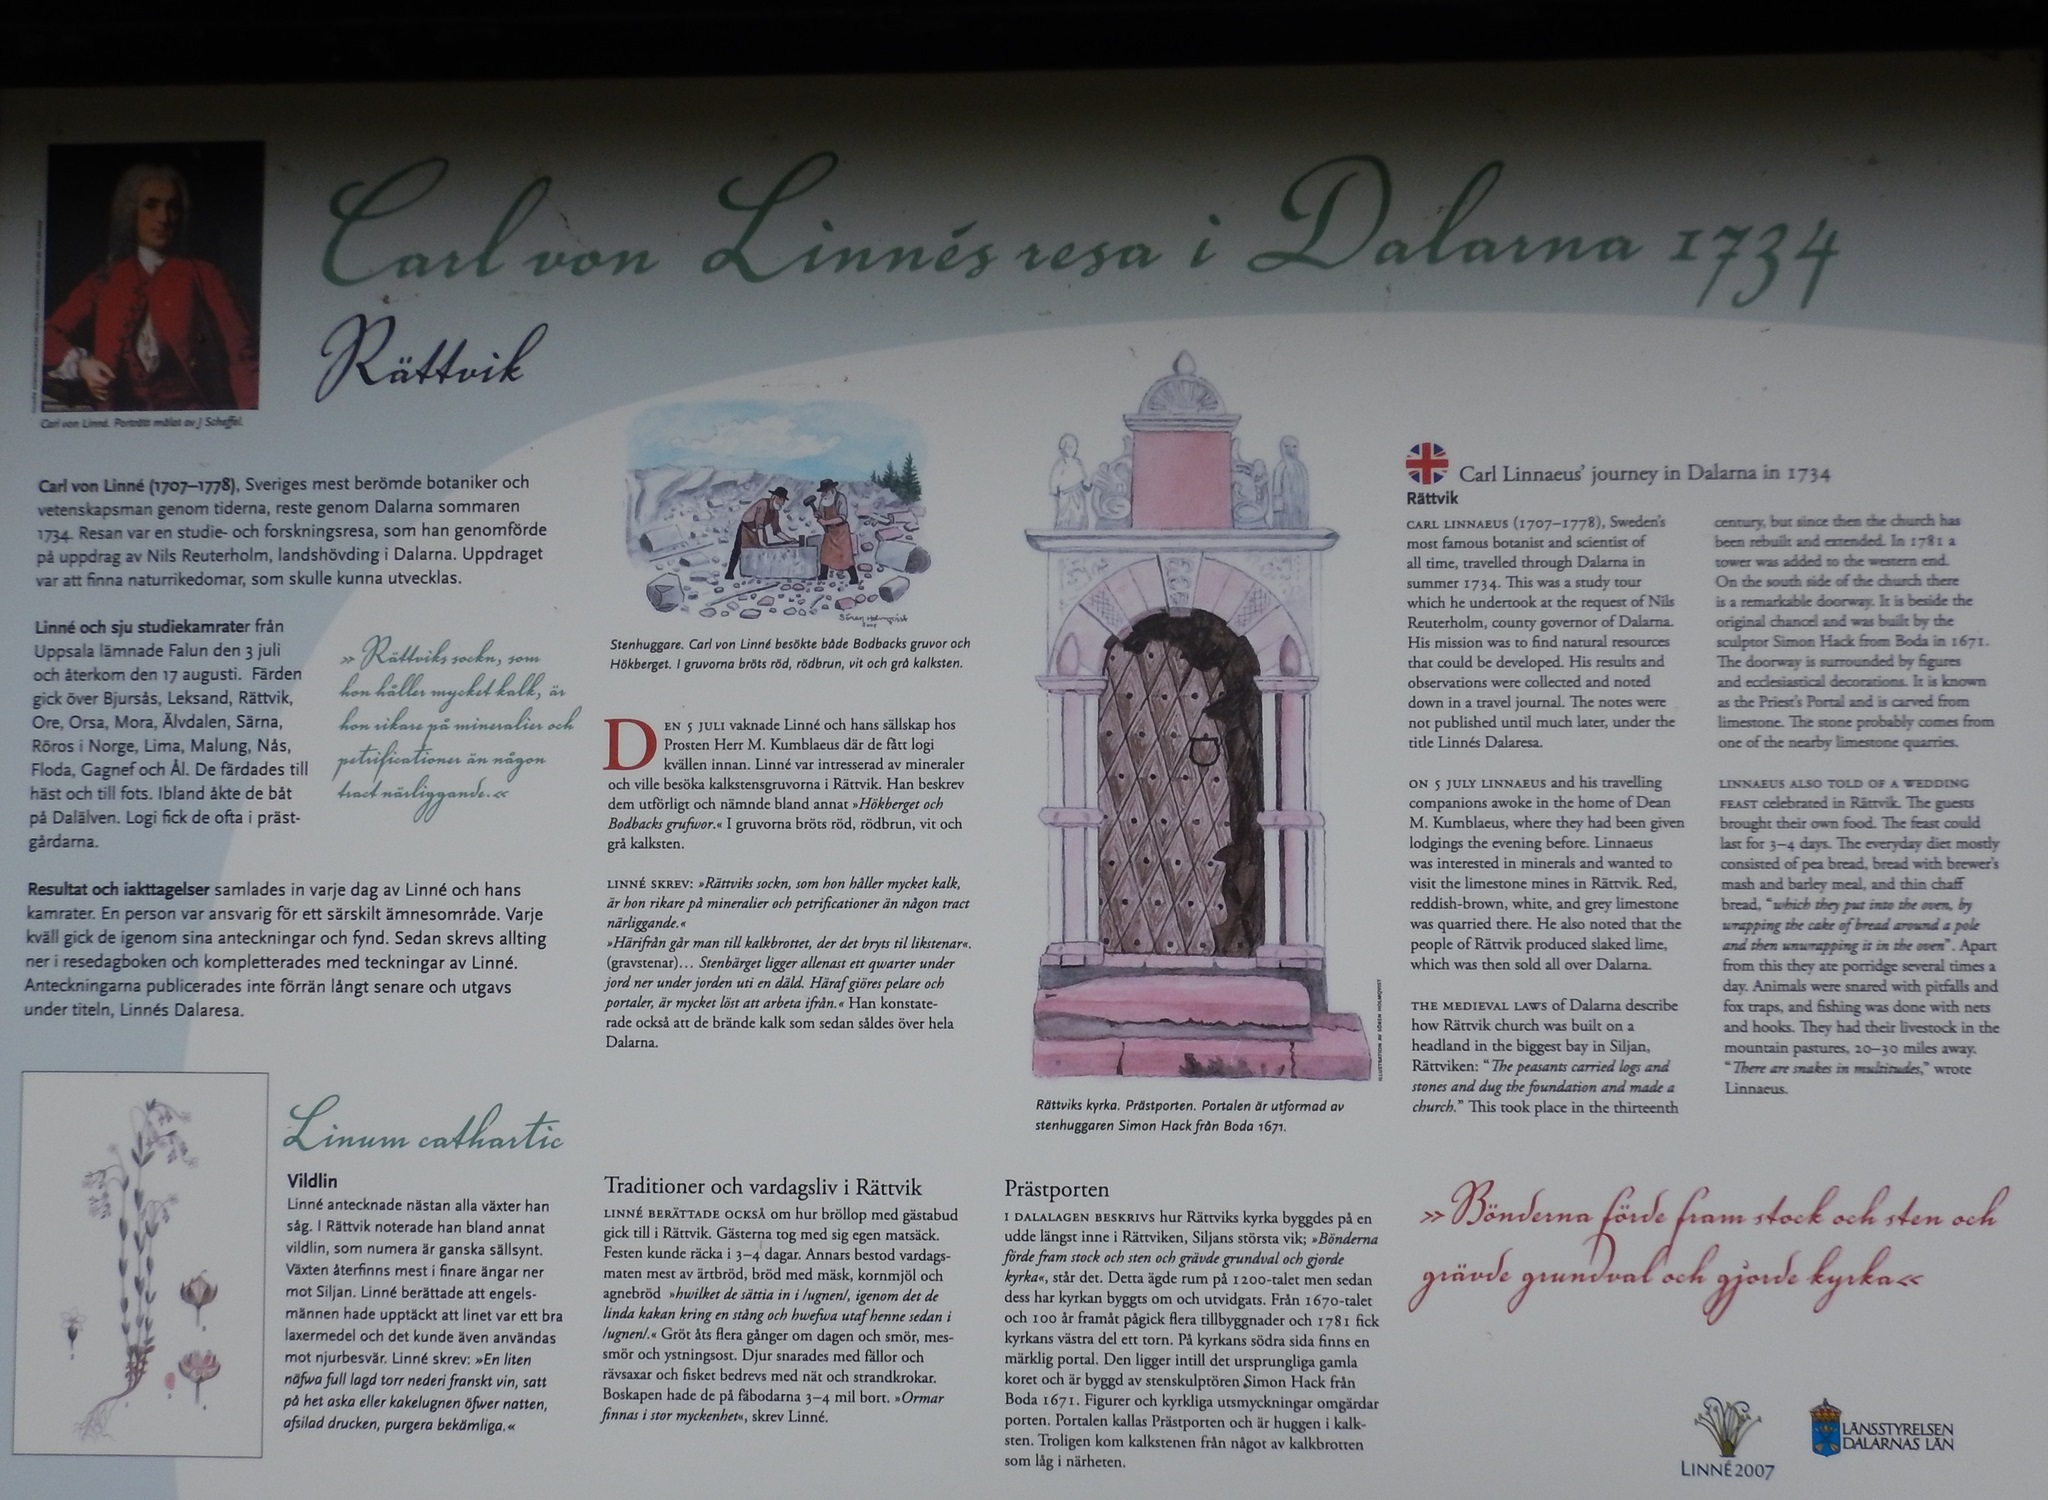 Carl von Linnés resa i Dalarna 1734
Rättvik
Carl von Linné. Porträtt målat av J Scheffel.
Carl von Linné (1707–1778), Sveriges mest berömde botaniker och
vetenskapsman genom tiderna, reste genom Dalarna sommaren
1734. Resan var en studie- och forskningsresa, som han genomförde
på uppdrag av Nils Reuterholm, landshövding i Dalarna. Uppdraget
var att finna naturrikedomar, som skulle kunna utvecklas.
Linné och sju studiekamrater från
Uppsala lämnade Falun den 3 juli
och återkom den 17 augusti. Färden
gick över Bjursås, Leksand, Rättvik,
Ore, Orsa, Mora, Älvdalen, Särna,
Röros i Norge, Lima, Malung, Nås,
Floda, Gagnef och Ål. De färdades till
häst och till fots. Ibland åkte de båt
på Dalälven. Logi fick de ofta i präst-
gårdarna.
»Rättviks sockn, som
hon håller mycket kalk, är
hon rikare på mineralier och
petrificationer än någon
tract närliggande.«
Resultat och iakttagelser samlades in varje dag av Linné och hans
kamrater. En person var ansvarig för ett särskilt ämnesområde. Varje
kväll gick de igenom sina anteckningar och fynd. Sedan skrevs allting
ner i resedagboken och kompletterades med teckningar av Linné.
Anteckningarna publicerades inte förrän långt senare och utgavs
under titeln, Linnés Dalaresa.
Linum cathartic
Vildlin
Linné antecknade nästan alla växter han
såg. I Rättvik noterade han bland annat
vildlin, som numera är ganska sällsynt.
Växten återfinns mest i finare ängar ner
mot Siljan. Linné berättade att engels-
männen hade upptäckt att linet var ett bra
laxermedel och det kunde även användas
mot njurbesvär. Linné skrev: »En liten
näfwa full lagd torr nederi franskt vin, satt
på het aska eller kakelugnen öfwer natten,
afsilad drucken, purgera bekämliga.«
Sören Holmqvist
2007
Stenhuggare. Carl von Linné besökte både Bodbacks gruvor och
Hökberget. I gruvorna bröts röd, rödbrun, vit och grå kalksten.
DEN 5 JULI vaknade Linné och hans sällskap hos
Prosten Herr M. Kumblaeus där de fått logi
kvällen innan. Linné var intresserad av mineraler
och ville besöka kalkstensgruvorna i Rättvik. Han beskrev
dem utförligt och nämnde bland annat »Hökberget och
Bodbacks grufwor.« I gruvorna bröts röd, rödbrun, vit och
grå kalksten.
LINNÉ SKREV: »Rättviks sockn, som hon håller mycket kalk,
är hon rikare på mineralier och petrificationer än någon tract
närliggande.«
»Härifrån går man till kalkbrottet, der det bryts til likstenar«.
(gravstenar)... Stenbärget ligger allenast ett qwarter under
jord ner under jorden uti en däld. Häraf giöres pelare och
portaler, är mycket löst att arbeta ifrån.« Han konstate-
rade också att de brände kalk som sedan såldes över hela
Dalarna.
Traditioner och vardagsliv i Rättvik
LINNÉ BERÄTTADE OCKSÅ om hur bröllop med gästabud
gick till i Rättvik. Gästerna tog med sig egen matsäck.
Festen kunde räcka i 3–4 dagar. Annars bestod vardags-
maten mest av ärtbröd, bröd med mäsk, kornmjöl och
agnebröd »hwilket de sättia in i /ugnen/, igenom det de
linda kakan kring en stång och hwefwa utaf henne sedan i
/ugnen/.« Gröt åts flera gånger om dagen och smör, mes-
smör och ystningsost. Djur snarades med fällor och
rävsaxar och fisket bedrevs med nät och strandkrokar.
Boskapen hade de på fäbodarna 3–4 mil bort. »Ormar
finnas i stor myckenhet«, skrev Linné.
ILLUSTRATION AV SÖREN HOLMQVIST
Rättviks kyrka. Prästporten. Portalen är utformad av
stenhuggaren Simon Hack från Boda 1671.
Prästporten
I DALALAGEN BESKRIVS hur Rättviks kyrka byggdes på en
udde längst inne i Rättviken, Siljans största vik; »Bönderna
förde fram stock och sten och grävde grundval och gjorde
kyrka«, står det. Detta ägde rum på 1200-talet men sedan
dess har kyrkan byggts om och utvidgats. Från 1670-talet
och 100 år framåt pågick flera tillbyggnader och 1781 fick
kyrkans västra del ett torn. På kyrkans södra sida finns en
märklig portal. Den ligger intill det ursprungliga gamla
koret och är byggd av stenskulptören Simon Hack från
Boda 1671. Figurer och kyrkliga utsmyckningar omgärdar
porten. Portalen kallas Prästporten och är huggen i kalk-
sten. Troligen kom kalkstenen från något av kalkbrotten
som låg i närheten.
Carl Linnaeus' journey in Dalarna in 1734
Rättvik
CARL LINNAEUS (1707–1778), Sweden's
most famous botanist and scientist of
all time, travelled through Dalarna in
summer 1734. This was a study tour
which he undertook at the request of Nils
Reuterholm, county governor of Dalarna.
His mission was to find natural resources
that could be developed. His results and
observations were collected and noted
down in a travel journal. The notes were
not published until much later, under the
title Linnés Dalaresa.
ON 5 JULY LINNAEUS and his travelling
companions awoke in the home of Dean
M. Kumblaeus, where they had been given
lodgings the evening before. Linnaeus
was interested in minerals and wanted to
visit the limestone mines in Rättvik. Red,
reddish-brown, white, and grey limestone
was quarried there. He also noted that the
people of Rättvik produced slaked lime,
which was then sold all over Dalarna.
THE MEDIEVAL LAWS of Dalarna describe
how Rättvik church was built on a
headland in the biggest bay in Siljan,
Rättviken: "The peasants carried logs and
stones and dug the foundation and made a
church." This took place in the thirteenth
century, but since then the church has
been rebuilt and extended. In 1781 a
tower was added to the western end.
On the south side of the church there
is a remarkable doorway. It is beside the
original chancel and was built by the
sculptor Simon Hack from Boda in 1671.
The doorway is surrounded by figures
and ecclesiastical decorations. It is known
as the Priest's Portal and is carved from
limestone. The stone probably comes from
one of the nearby limestone quarries.
LINNAEUS ALSO TOLD OF A WEDDING
FEAST celebrated in Rättvik. The guests
brought their own food. The feast could
last for 3–4 days. The everyday diet mostly
consisted of pea bread, bread with brewer's
mash and barley meal, and thin chaff
bread, "which they put into the oven, by
wrapping the cake of bread around a pole
and then unwrapping it in the oven". Apart
from this they ate porridge several times a
day. Animals were snared with pitfalls and
fox traps, and fishing was done with nets
and hooks. They had their livestock in the
mountain pastures, 20–30 miles away.
"There are snakes in multitudes," wrote
Linnaeus.
»Bönderna förde fram stock och sten och
grävde grundval och gjorde kyrka«
LINNÉ2007
LÄNSSTYRELSEN
DALARNAS LÄN